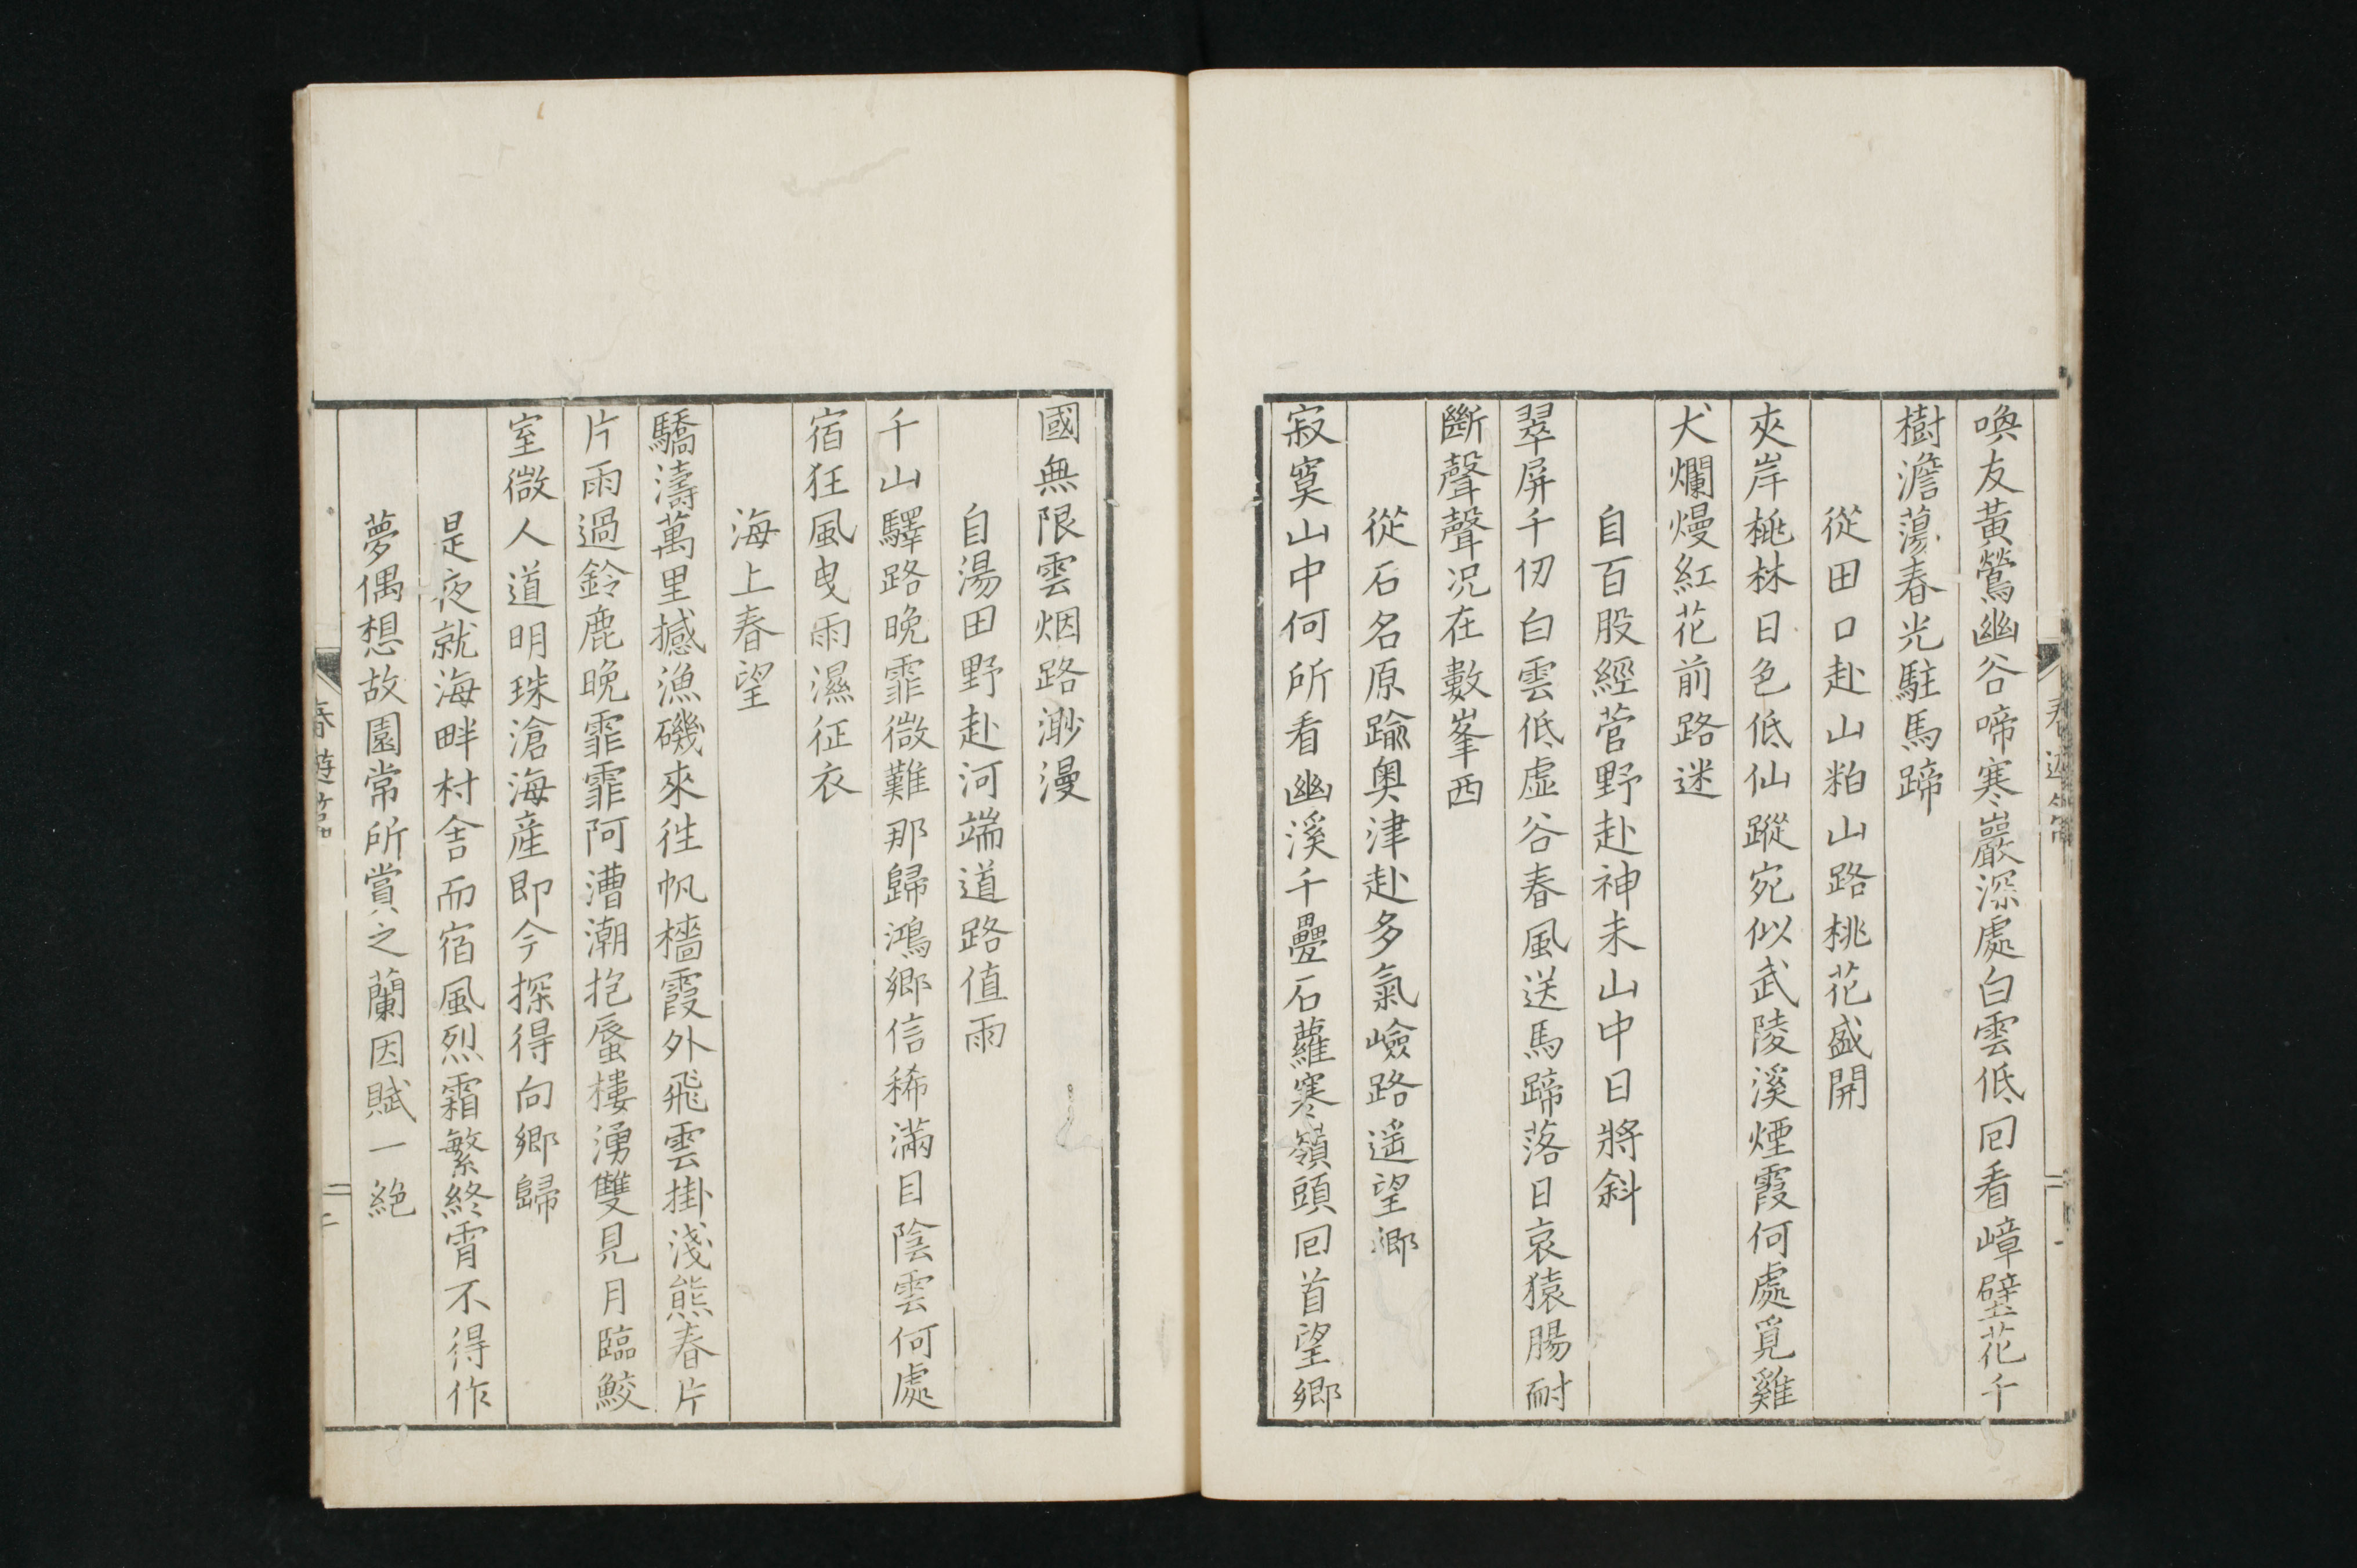 喚友黃鶯幽谷啼寒巖深處白雲低回看嶂壁花千
樹澹蕩春光駐馬蹄
從田口赴山粕山路桃花盛開
夾岸桃林日色低仙蹤宛似武陵溪煙霞何處覓雞
犬爛熳紅花前路迷
自百股經菅野赴神末山中日將斜
翠屏千仞白雲低虛谷春風送馬蹄落日哀猿腸耐
斷聲聲況在數峯西
從石名原踰奥津赴多氣嶮路遥望鄉
寂寞山中何所看幽溪千疊石蘿寒嶺頭回首望鄉
國無限雲烟路渺漫
自湯田野赴河端道路值雨
千山驛路晚霏微難那歸鴻鄉信稀滿目陰雲何處
宿狂風曳雨濕征衣
海上春望
驕濤萬里撼漁磯來往帆檣霞外飛雲掛淺熊春片
片雨過鈴鹿晚霏霏阿漕潮抱蜃樓湧雙見月臨鮫
室微人道明珠滄海産即今探得向鄉歸
是夜就海畔村舍而宿風烈霜繁終宵不得作
夢偶想故園常所賞之蘭因賦一絕
春遊篇
二